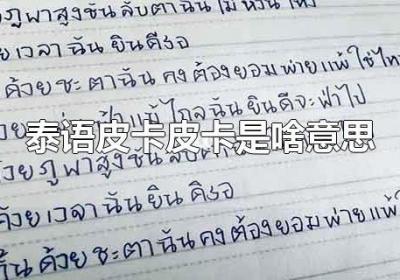 ภูพาสูงชัน ลับตาฉันไม่หวั่นไหว
เวลา ฉัน ยินดีรอ
ด้วย ชะ ตา ฉัน คง ต้อง ยอม พ่าย แพ้ ใช่ไหม
ไกล ฉัน ยินดี จะ ฝ่า ไป
泰语皮卡皮卡是啥意思
ภู พา สูง ชัน
ด้วย เวลา ฉัน ยิน ดีรอ
ด้วย ชะ ตา ฉัน คง ต้อง ยอม พ่าย แพ้